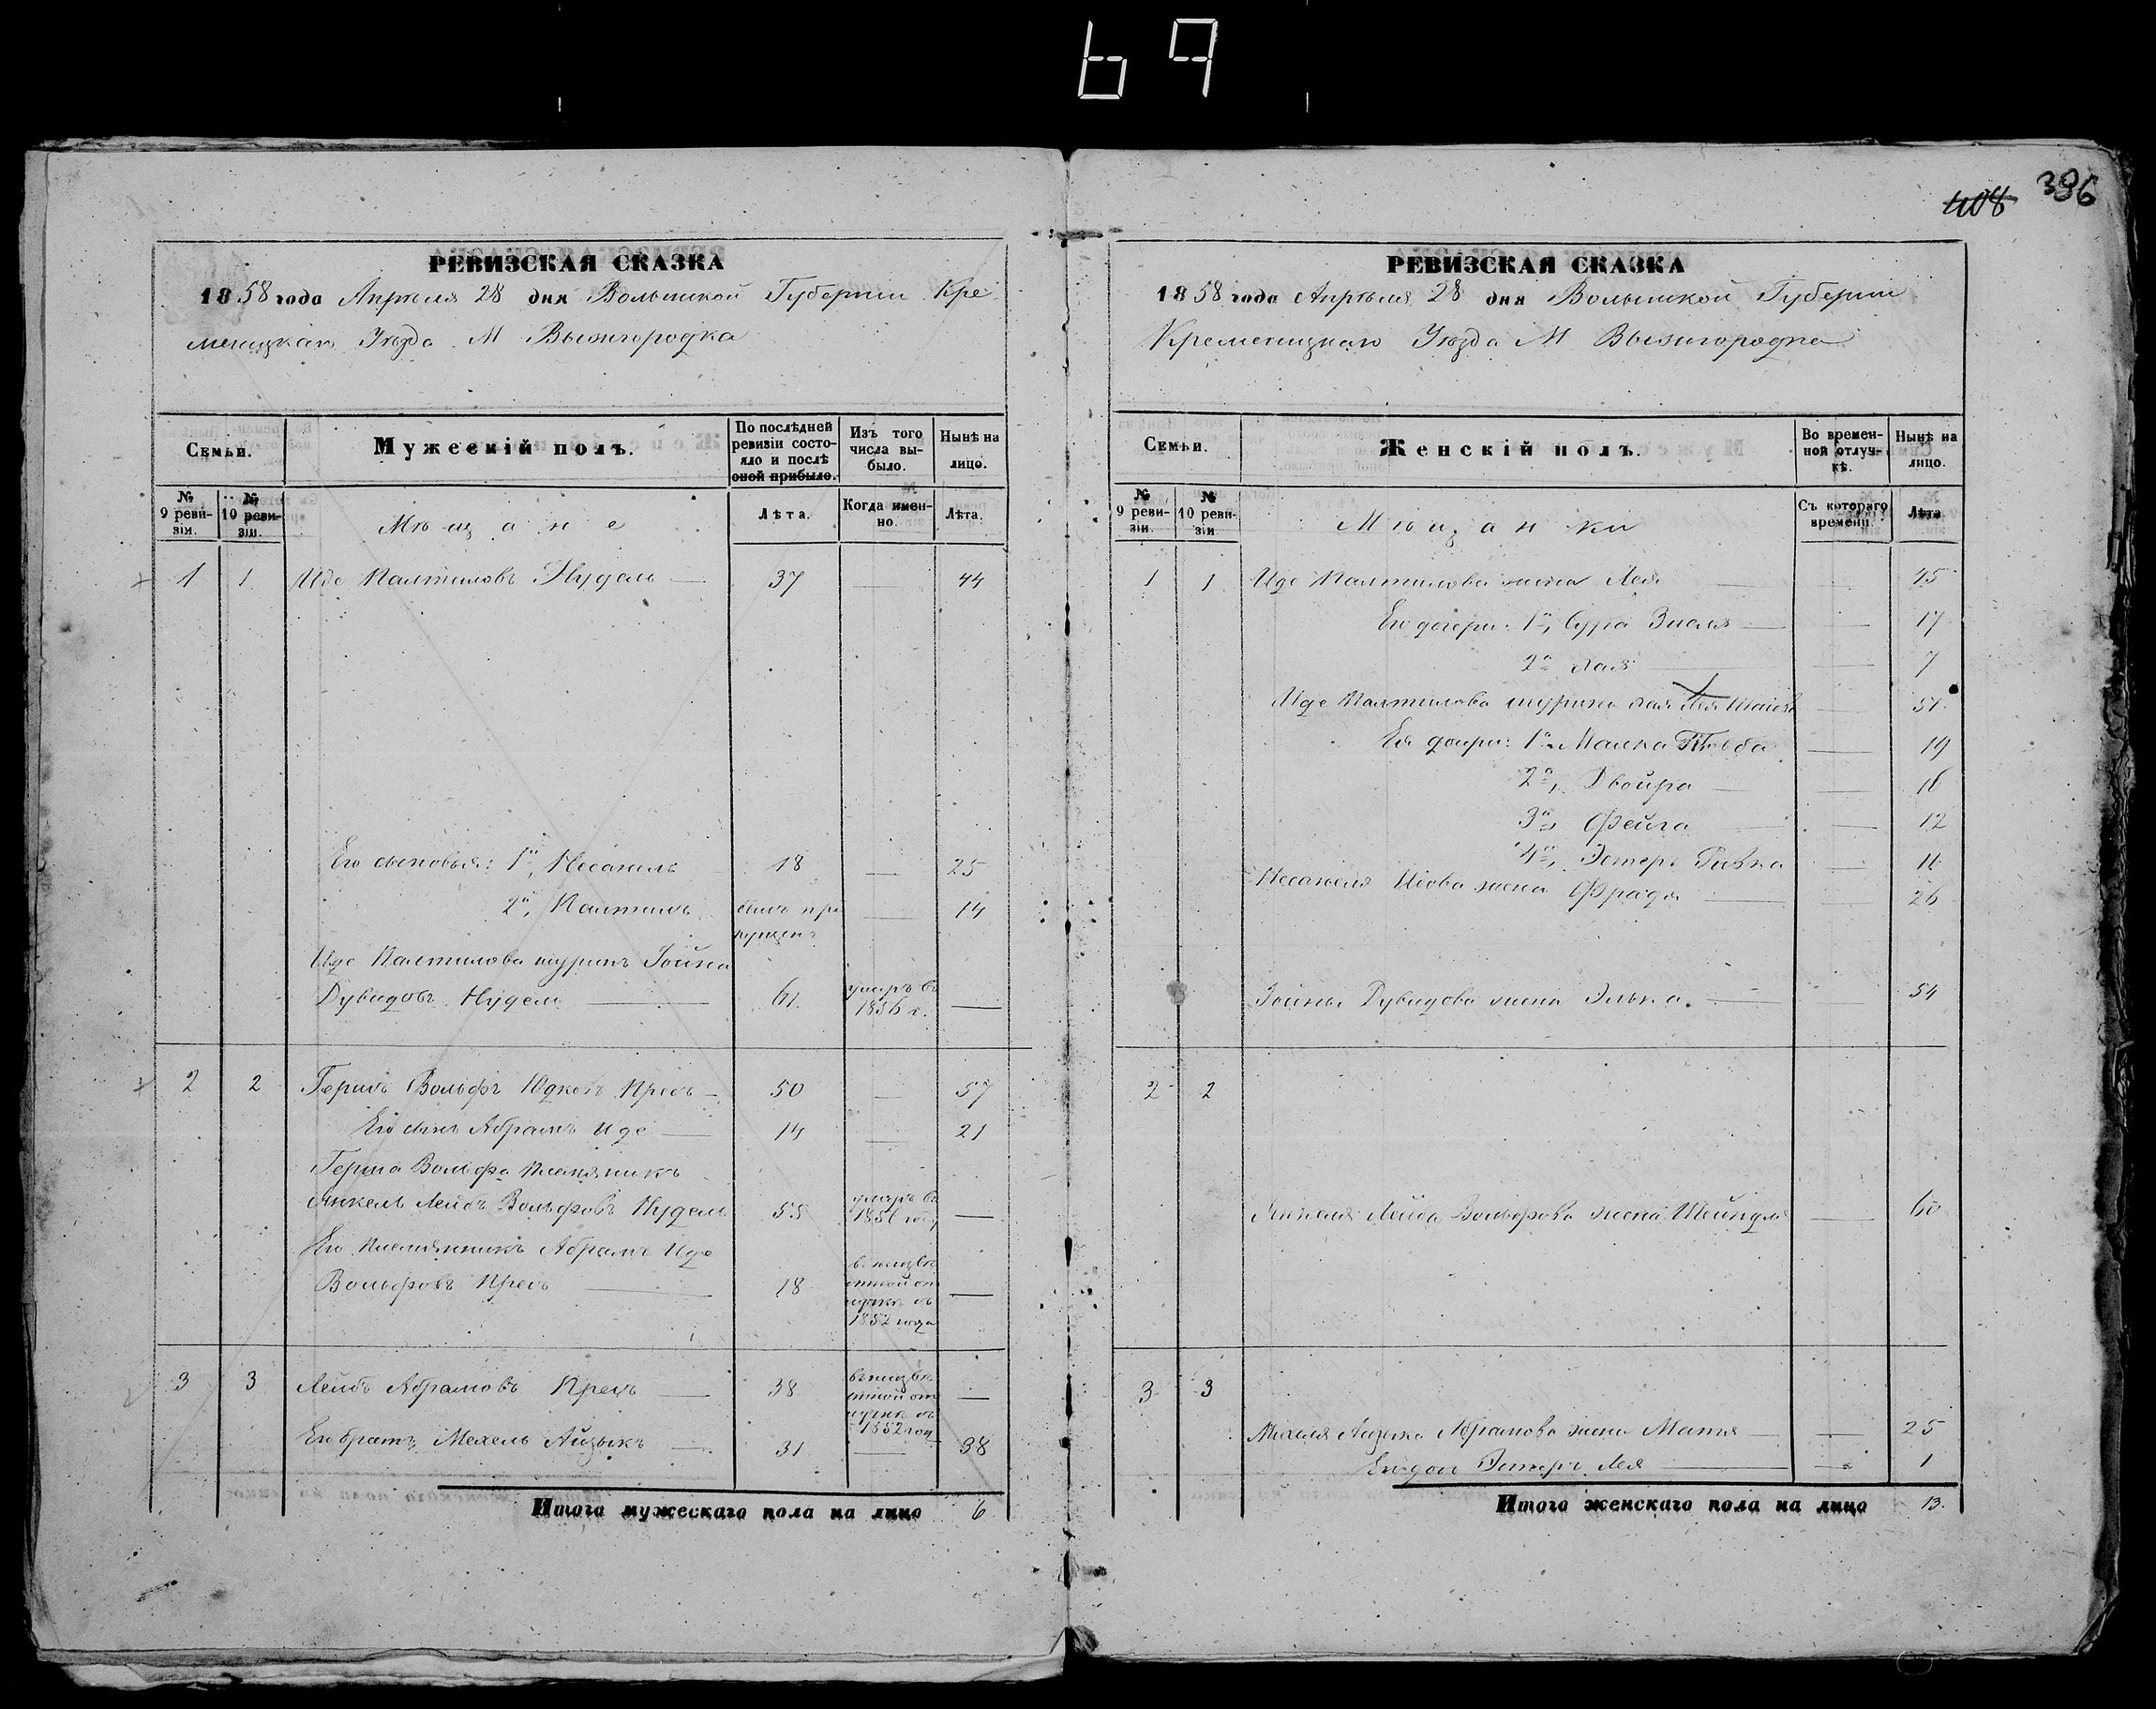 69
408 396
РЕВИЗСКАЯ СКАЗКА
1858 года Апрѣля 28 дня Волынской Губерніи Кре
менецкаго Уѣзда М Вышгородка
Семьи.
Мужескій полъ.
По послѣдней ревизіи состояло и послѣ оной прибыло.
Изъ того числа выбыло.
Нынѣ на лицо.
№ 9 ревизіи.
№ 10 ревизіи.
Мѣщане
Лѣта.
Когда именно.
Лѣта.
1 1 Иде Палтиловъ Нудель 37 — 44
Его сыновья: 1й, Несанель 18 — 25
2й, Палтилъ былъ про — 14
пущенъ
Иде Палтилова шуринъ Зойна
Дувидовъ Нудель 61 умеръ въ 1856 г. —
2 2 Гершъ Вольфъ Юдковъ Пресъ 50 — 57
Его сынъ Абрамъ Иде 14 — 21
Герша Вольфа племяникъ
Янкель Лейбъ Вольфовъ Нудель 55 умеръ въ 1856 году —
Его племянникъ Абрамъ Иде
Вольфовъ Пресъ 18 в неизвѣстной отлучкѣ съ 1852 года —
3 3 Лейбъ Абрамовъ Пресъ 38 въ неизвѣстной отлучкѣ съ 1852 года —
Его братъ Мехель Айзыкъ 31 — 38
Итого мужескаго пола на лицо 6
РЕВИЗСКАЯ СКАЗКА
1858 года Апрѣля 28 дня Волынской Губерніи
Кременецкаго Уѣзда М Вышгородка
Семьи.
Женскій полъ.
Во временной отлучкѣ.
Нынѣ на лицо.
№ 9 ревизіи.
№ 10 ревизіи.
Мѣщанки
Съ котораго времени.
Лѣта.
1 1 Иде Палтилова жена Лея 45
Его дочери: 1я, Сура Зисля — 17
2я Хая — 7
Иде Палтилова шурина — 51
Ея дочери: 1я Малка Тоба — 19
2я, Двойра — 16
3я, Фейга — 12
4я, Эстеръ Ривка — 11
Несанеля Идова жена Фрадя — 26
Зойны Дувидова жена Элька. — 54
2 2
Янкеля Лейба Вольфова жена Шейндля — 60
3 3
Мехеля Айзыка Абрамова жена Матя — 25
Его дочь Эстеръ Лея — 1
Итого женскаго пола на лицо 13.